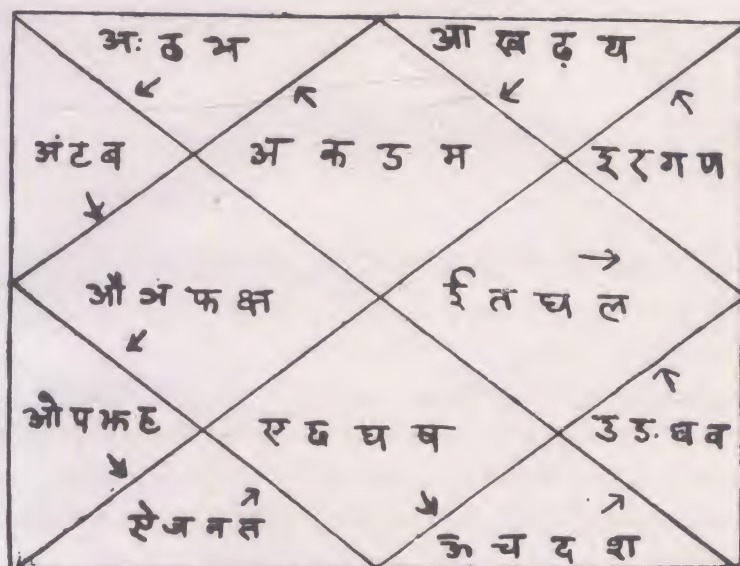 अः ठ भ
आ ख ढ़ य
अं ट ब
अ क ड म
इ र ग ण
औ ञ फ क्ष
ई त घ ल
ओ प झ ह
ए छ घ ष
उ ङ ध व
ऐ ज न स
ऊ च द श